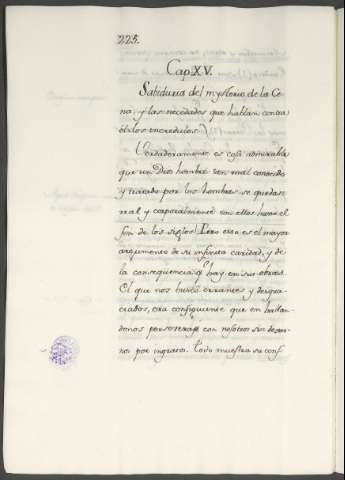 225.
Cap. XV.
Sabiduria del mysterio de la Ce-
na, y las necedades que hablan contra
el los incredulos.
Verdaderamente es cosa admirable
que un Dios hombre tan mal conocido
y tratado por los hombres se quedase
real y corporalmente con ellos hasta el
fin de los siglos! Pero este es el mayor
argumento de su infinita caridad, y de
la consequencia q̃ hay en sus obras.
El que nos buscó errantes y desgra-
ciados, era consiguiente que en hallan-
donos perseverase con nosotros sin
nos por ingratos. Todo muestra su conf-